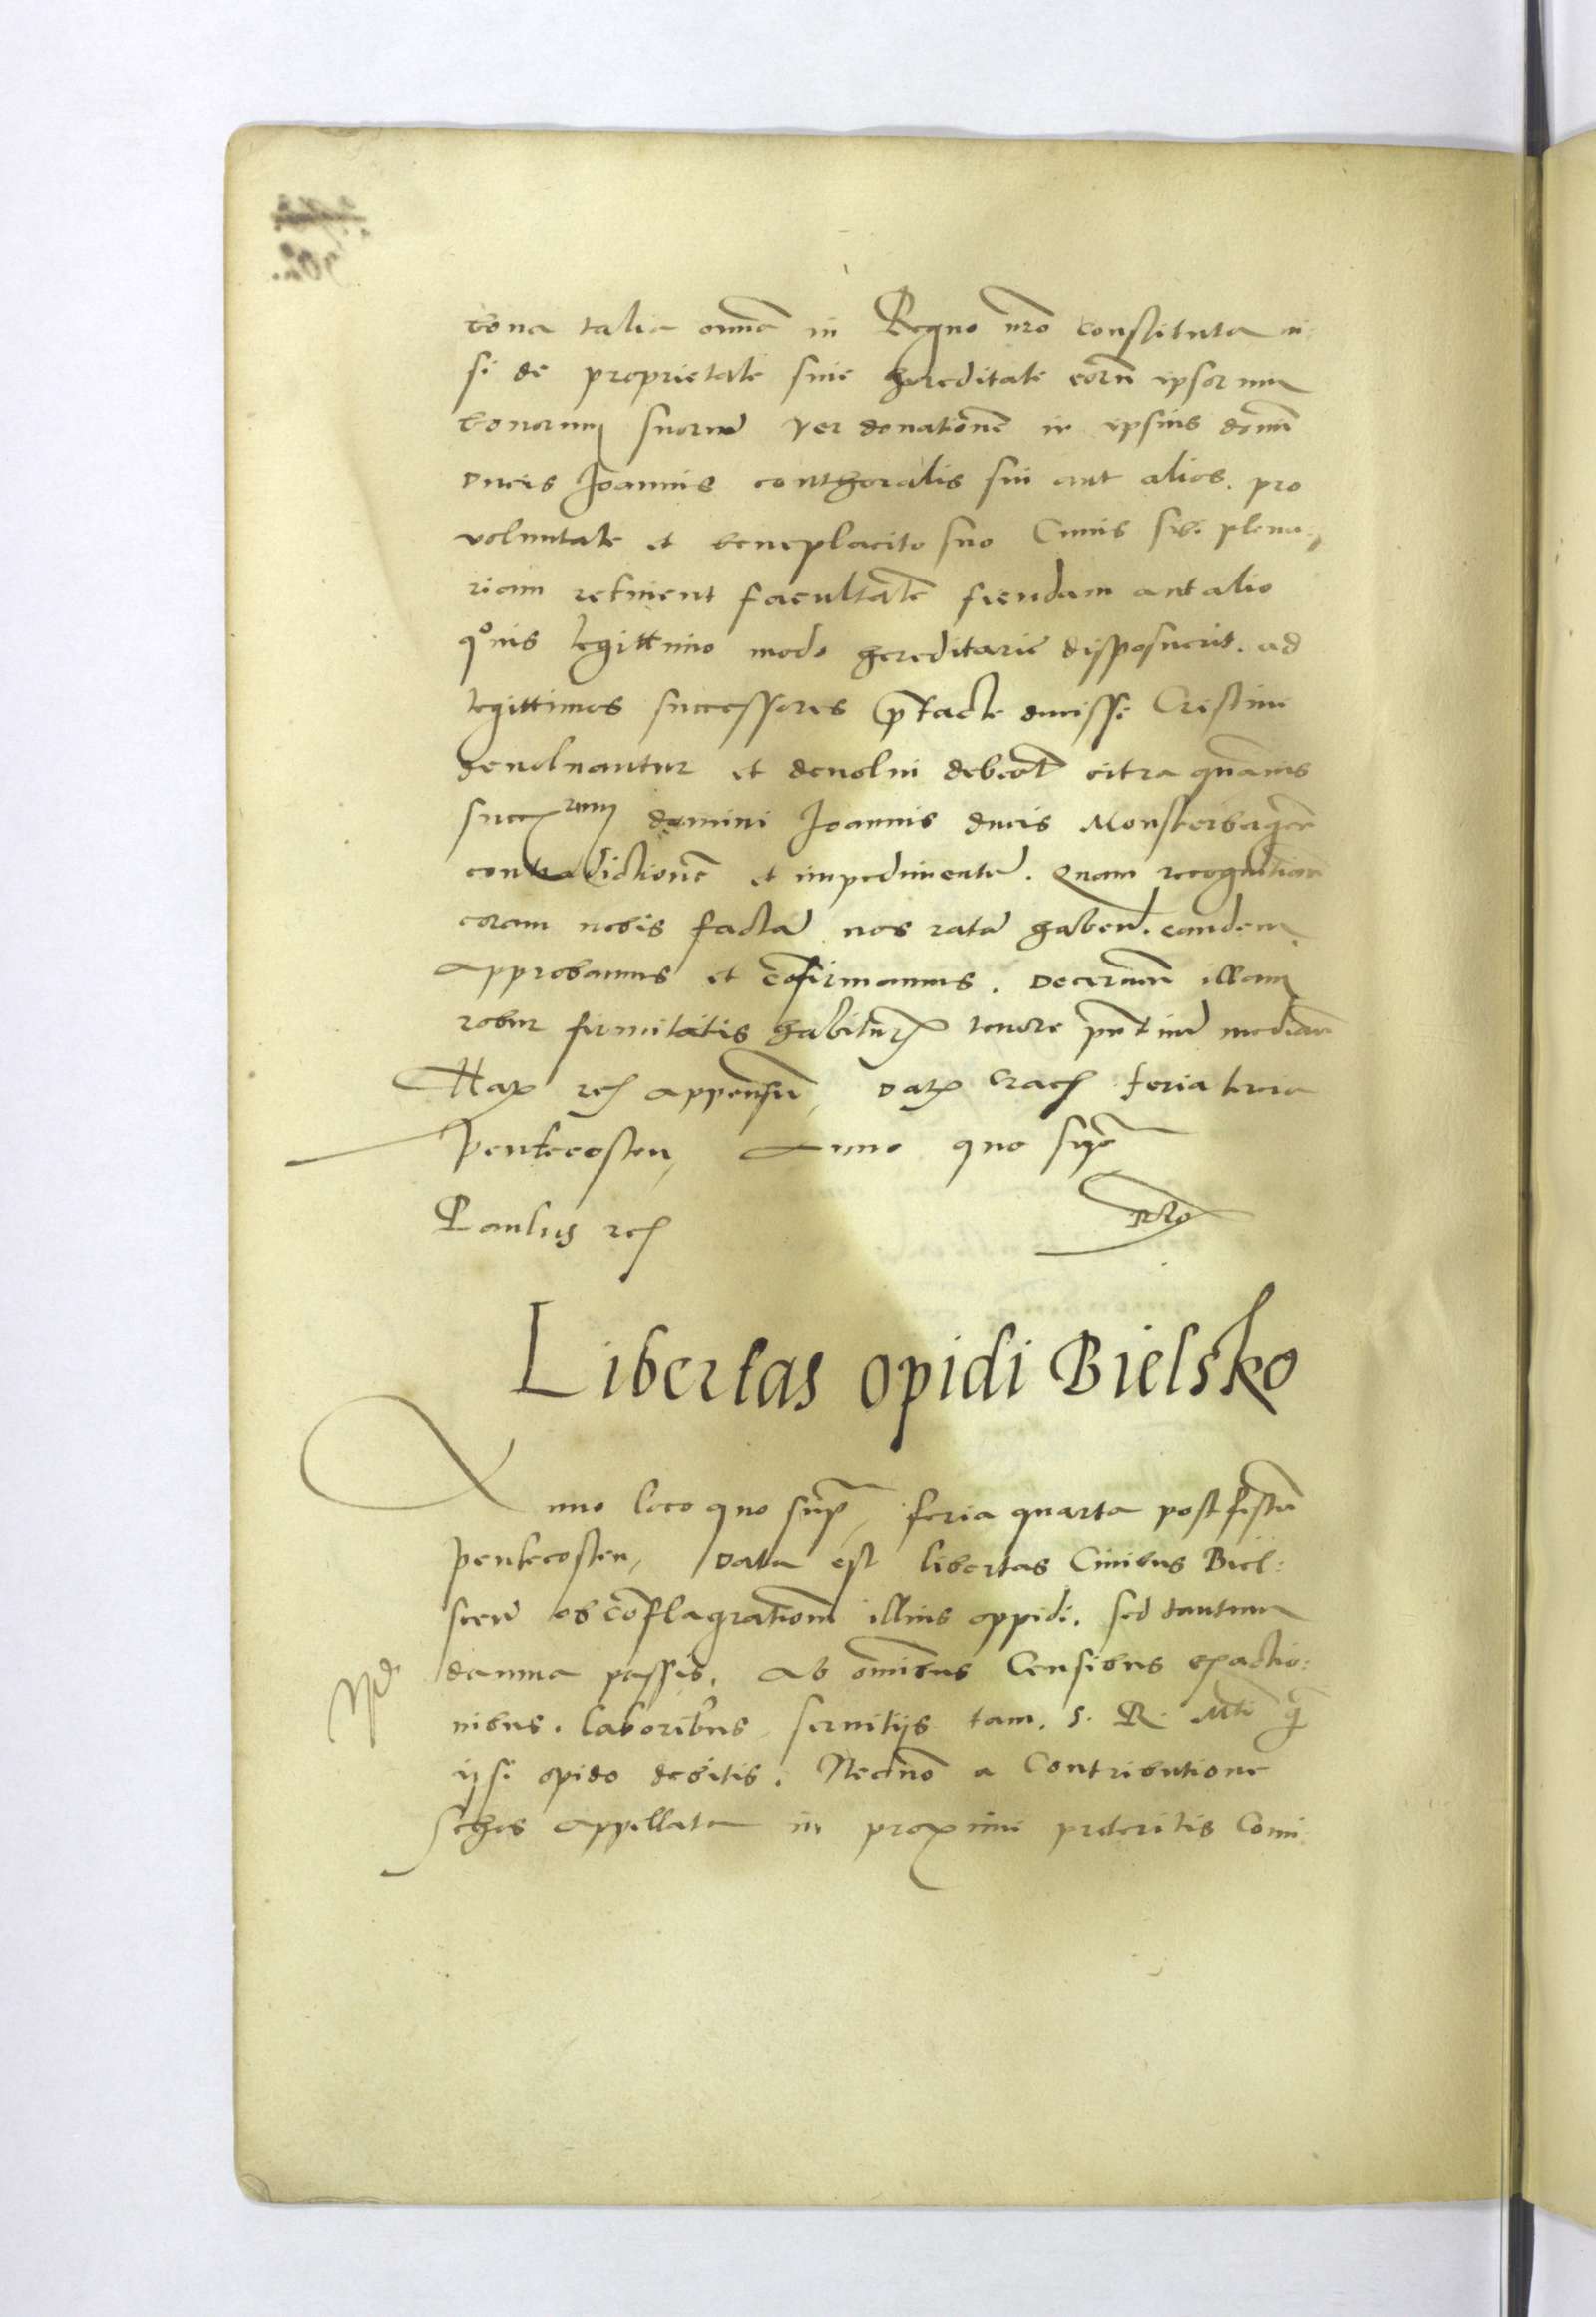 bona talia omnia in Regno nro constituta ni:
si de proprietate siue hereditate eorum ipsorum
bonorum suorum per donationem in ipsius domini
ducis Joannis conthoralis sui aut alios. pro
voluntate et beneplacito suo Cuius sibi plena,,
riam retinent facultatem fiendam aut alio
quouis legittimo modo hereditarie disposuerit. ad
legittimos successores ducisse Cristine
deuoluantur et deuolui debeant citra quamuis
succrum domini Joannis ducis Monsterbergen
contradictionem et impedimentum. Quam recognitionem
coram nobis factam nos ratam haben. eandem
approbamus et confirmamus. decernimus illam
robur firmitatis habituram tenore pntium mediante
appensum, Datum Crac feria tercia
Pentecosten, Anno quo supra
Paulus
Libertas opidi Bielsko
Anno loco quo supra, feria quarta post festum
pentecosten, data est libertas Ciuibus Biel:
scen ob conflagrationem illius oppidi. sed tantum
damna passis. Ab omnibus Censibus exactio:
nibus. laboribus, seruitijs tam. S. R. Mti q
ipsi opido debitis. Necnon a Contributione
schos appellata in proxime preteritis Comi: